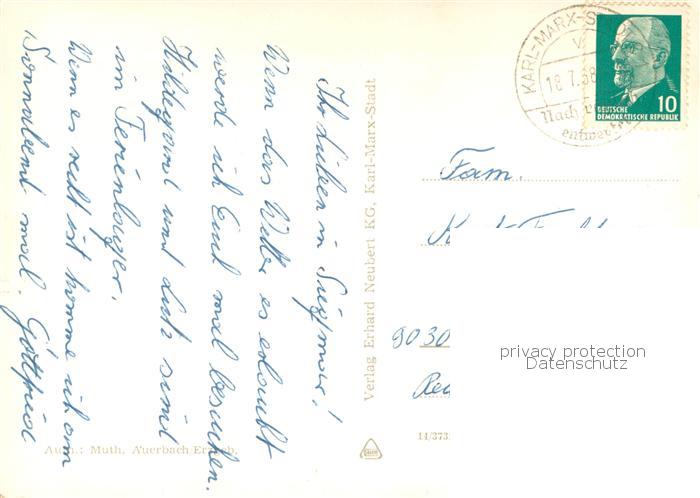 Ihr Lieben in Siegmar!
Wenn das Wetter es erlaubt
werde ich Euch mal besuchen.
Hildegard und Lutz sind
im Ferienlager.
Wenn es recht ist komme ich am
Sonnabend mal. Gottfried
Aufn.: Muth, Auerbach/Erzgeb.
Verlag Erhard Neubert KG, Karl-Marx-Stadt
KARL-MARX-S
18.7.68
Nach
entwertet
10
DEUTSCHE
DEMOKRATISCHE REPUBLIK
Fam.
9030
14/373
privacy protection
Datenschutz